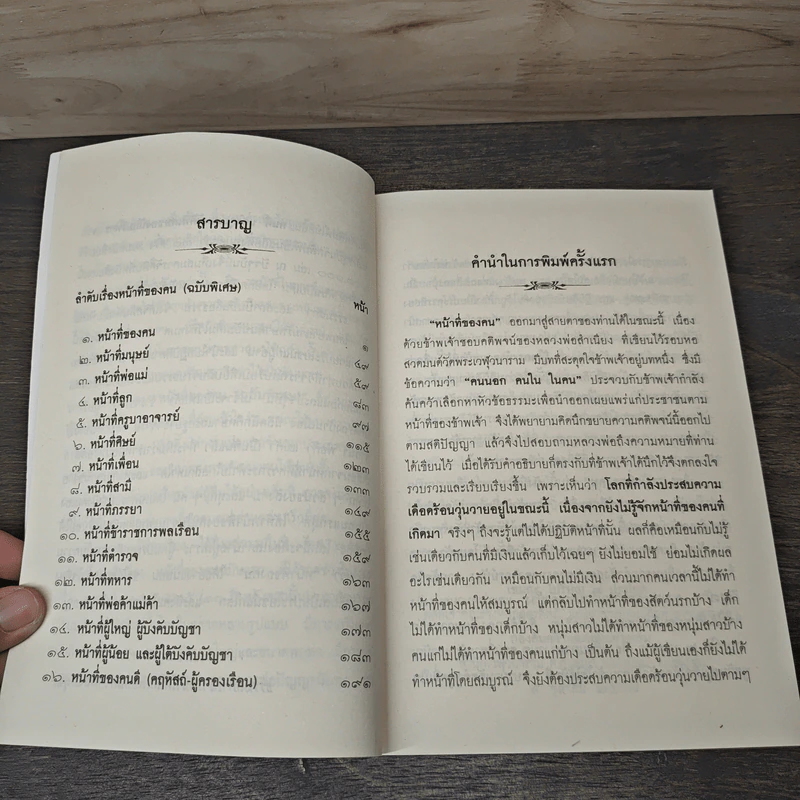 สารบาญ
ลำดับเรื่องหน้าที่ของคน (ฉบับพิเศษ)
หน้า
๑. หน้าที่ของคน ๑
๒. หน้าที่มนุษย์ ๔๙
๓. หน้าที่พ่อแม่ ๕๙
๔. หน้าที่ลูก ๘๓
๕. หน้าที่ครูบาอาจารย์ ๙๗
๖. หน้าที่ศิษย์ ๑๑๕
๗. หน้าที่เพื่อน ๑๒๓
๘. หน้าที่สามี ๑๓๓
๙. หน้าที่ภรรยา ๑๔๙
๑๐. หน้าที่ข้าราชการพลเรือน ๑๕๕
๑๑. หน้าที่ตำรวจ ๑๕๙
๑๒. หน้าที่ทหาร ๑๖๓
๑๓. หน้าที่พ่อค้าแม่ค้า ๑๖๗
๑๔. หน้าที่ผู้ใหญ่ ผู้บังคับบัญชา ๑๗๓
๑๕. หน้าที่ผู้น้อย และผู้ใต้บังคับบัญชา ๑๘๓
๑๖. หน้าที่ของคนดี (คฤหัสถ์-ผู้ครองเรือน) ๑๙๑
คำนำในการพิมพ์ครั้งแรก
“หน้าที่ของคน” ออกมาสู่สายตาของท่านได้ในขณะนี้ เนื่อง
ด้วยข้าพเจ้าชอบคติพจน์ของหลวงพ่อสำเนียง ที่เขียนไว้รอบหอ
สวดมนต์วัดพระเวฬุวนาราม มีบทที่สะดุดใจข้าพเจ้าอยู่บทหนึ่ง ซึ่งมี
ข้อความว่า “คนนอก คนใน ในคน” ประจวบกับข้าพเจ้ากำลัง
ค้นคว้าเลือกหาหัวข้อธรรมะเพื่อนำออกเผยแพร่แก่ประชาชนตาม
หน้าที่ของข้าพเจ้า จึงได้พยายามคิดนึกขยายความคติพจน์นี้ออกไป
ตามสติปัญญา แล้วจึงไปสอบถามหลวงพ่อถึงความหมายที่ท่าน
ได้เขียนไว้ เมื่อได้รับคำอธิบายก็ตรงกับที่ข้าพเจ้าได้นึกไว้จึงตกลงใจ
รวบรวมและเรียบเรียงขึ้น เพราะเห็นว่า โลกที่กำลังประสบความ
เดือดร้อนวุ่นวายอยู่ในขณะนี้ เนื่องจากยังไม่รู้จักหน้าที่ของคนที่
เกิดมา จริงๆ ถึงจะรู้แต่ไม่ได้ปฏิบัติหน้าที่นั้น ผลก็คือเหมือนกับไม่รู้
เช่นเดียวกับคนที่มีเงินแล้วเก็บไว้เฉยๆ ยังไม่ยอมใช้ ย่อมไม่เกิดผล
อะไรเช่นเดียวกัน เหมือนกับคนไม่มีเงิน ส่วนมากคนเวลานี้ไม่ได้ทำ
หน้าที่ของคนให้สมบูรณ์ แต่กลับไปทำหน้าที่ของสัตว์นรกบ้าง เด็ก
ไม่ได้ทำหน้าที่ของเด็กบ้าง หนุ่มสาวไม่ได้ทำหน้าที่ของหนุ่มสาวบ้าง
คนแก่ไม่ได้ทำหน้าที่ของคนแก่บ้าง เป็นต้น ถึงแม้ผู้เขียนเองก็ยังไม่ได้
ทำหน้าที่โดยสมบูรณ์ จึงยังต้องประสบความเดือดร้อนวุ่นวายไปตามๆ